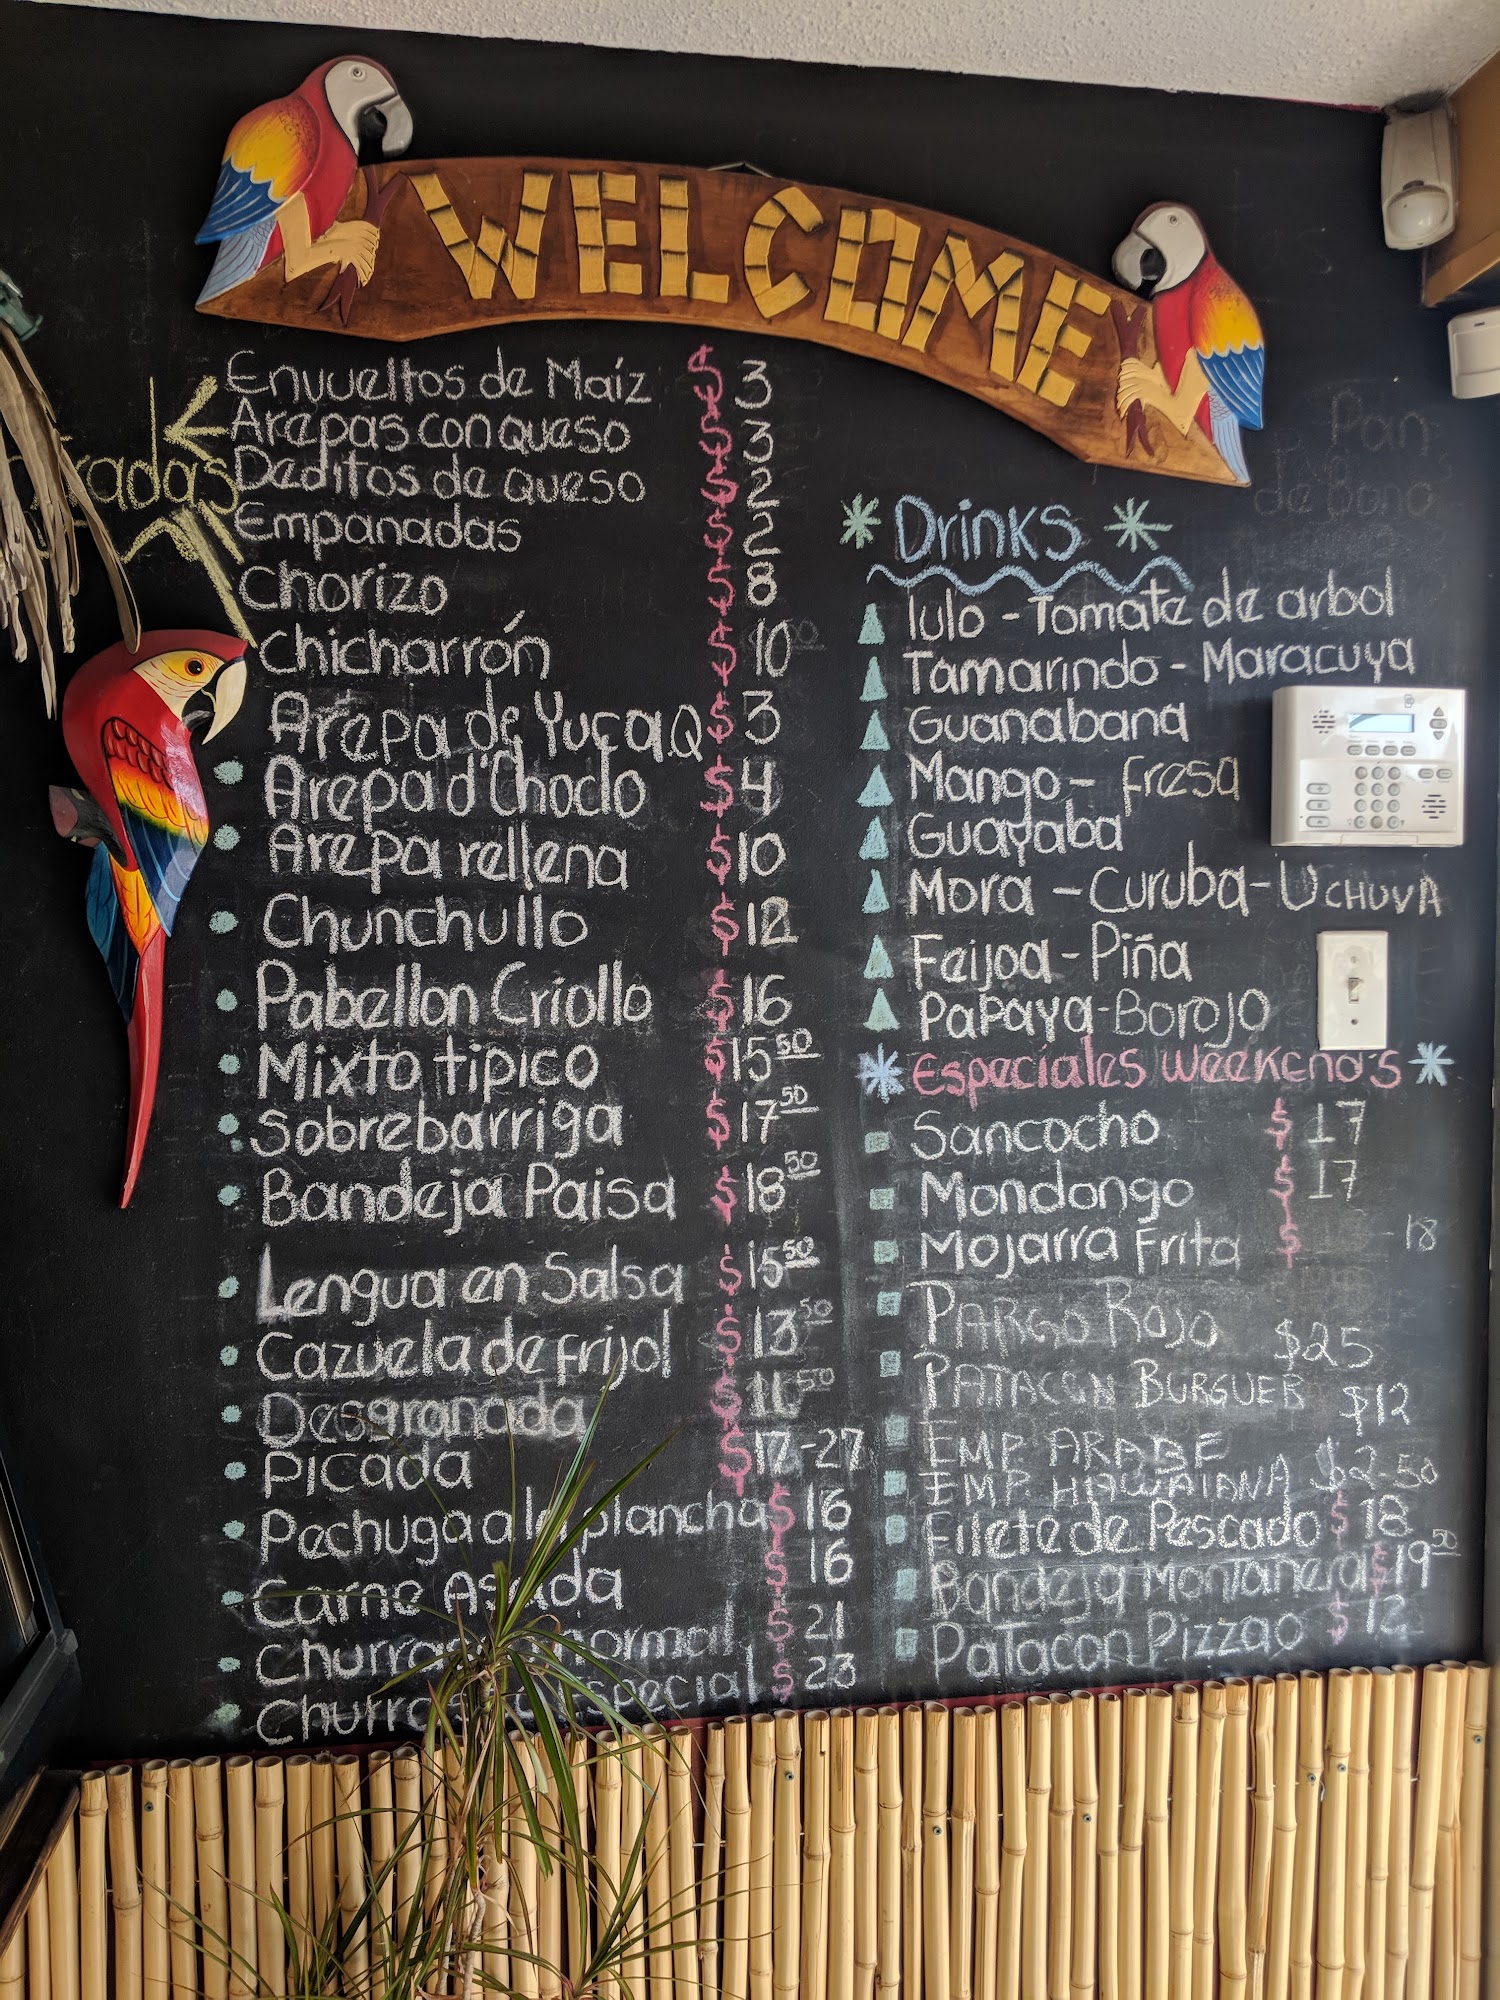 WELCOME
Envueltos de Maíz $ 3
Arepas con queso $ 3
Deditos de queso $ 2
Empanadas $ 2
Chorizo $ 8
Chicharrón $ 10
Arepa de Yuca.Q $ 3
Arepa d'Choclo $ 4
Arepa rellena $ 10
Chunchullo $ 12
Pabellon Criollo $ 16
Mixto tipico $ 15 50
Sobrebarriga $ 17 50
Bandeja Paisa $ 18 50
Lengua en Salsa $ 15 50
Cazuela de frijol $ 13 50
Desgranada $ 11 50
Picada $ 17-27
Pechuga a la plancha $ 16
Carne Asada $ 16
normal $ 21
Especial $ 23
Drinks
lulo - Tomate de arbol
Tamarindo - Maracuya
Guanabana
Mango - fresa
Guayaba
Mora - Curuba - UCHUVA
Feijoa - Piña
Papaya - Borojo
Especiales Weekend's
Sancocho $ 17
Mondongo $ 17
Mojarra Frita $ 18
PARGO ROJO $25
PATACON BURGUER $12
EMP ARABE
EMP HAWAIANA $2-50
Filete de Pescado $ 18
Bandeja Montanera $ 19 50
Patacon Pizzao $ 12